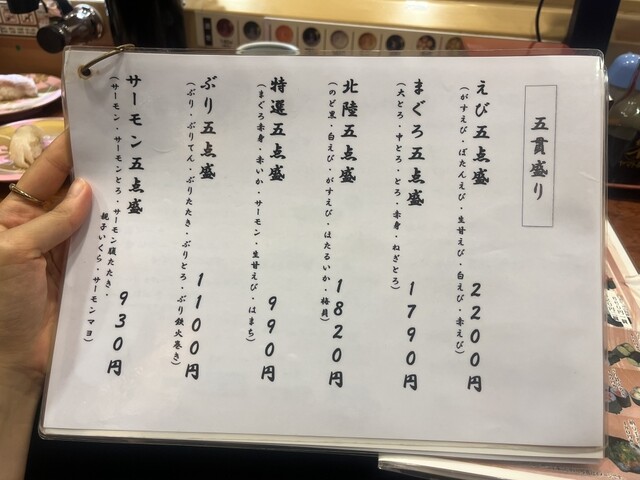 五貫盛り
えび五点盛 2200円
(がすえび・ぼたんえび・生甘えび・白えび・赤えび)
まぐろ五点盛 1790円
(大とろ・中とろ・とろ・赤身・ねぎとろ)
北陸五点盛 1820円
(のど黒・白えび・がすえび・ほたるいか・梅貝)
特選五点盛 990円
(まぐろ赤身・赤いか・サーモン・生甘えび・はまち)
ぶり五点盛 1100円
(ぶり・ぶりてん・ぶりたたき・ぶりとろ・ぶり鉄火巻き)
サーモン五点盛 930円
(サーモン・サーモンとろ・サーモン腹たたき・
親子いくら・サーモンマヨ)